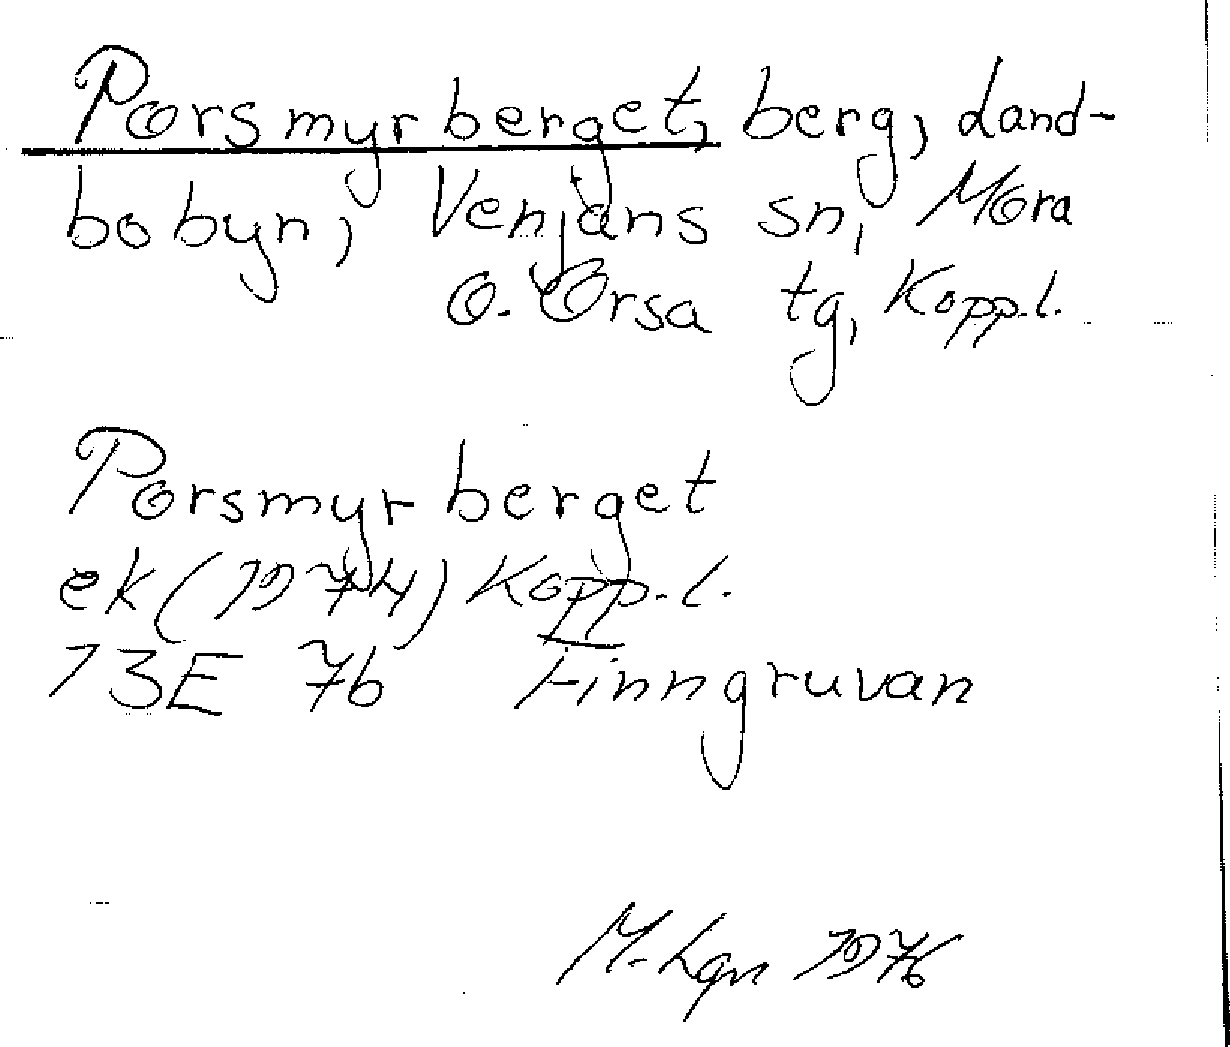 Porsmyrberget, berg, Land-
bobyn, Venjans sn, Mora
o. Orsa tg, Kopp.l.
Porsmyrberget
ek (1974) Kopp.l.
13E 7b Finngruvan
M. Lgn 1976